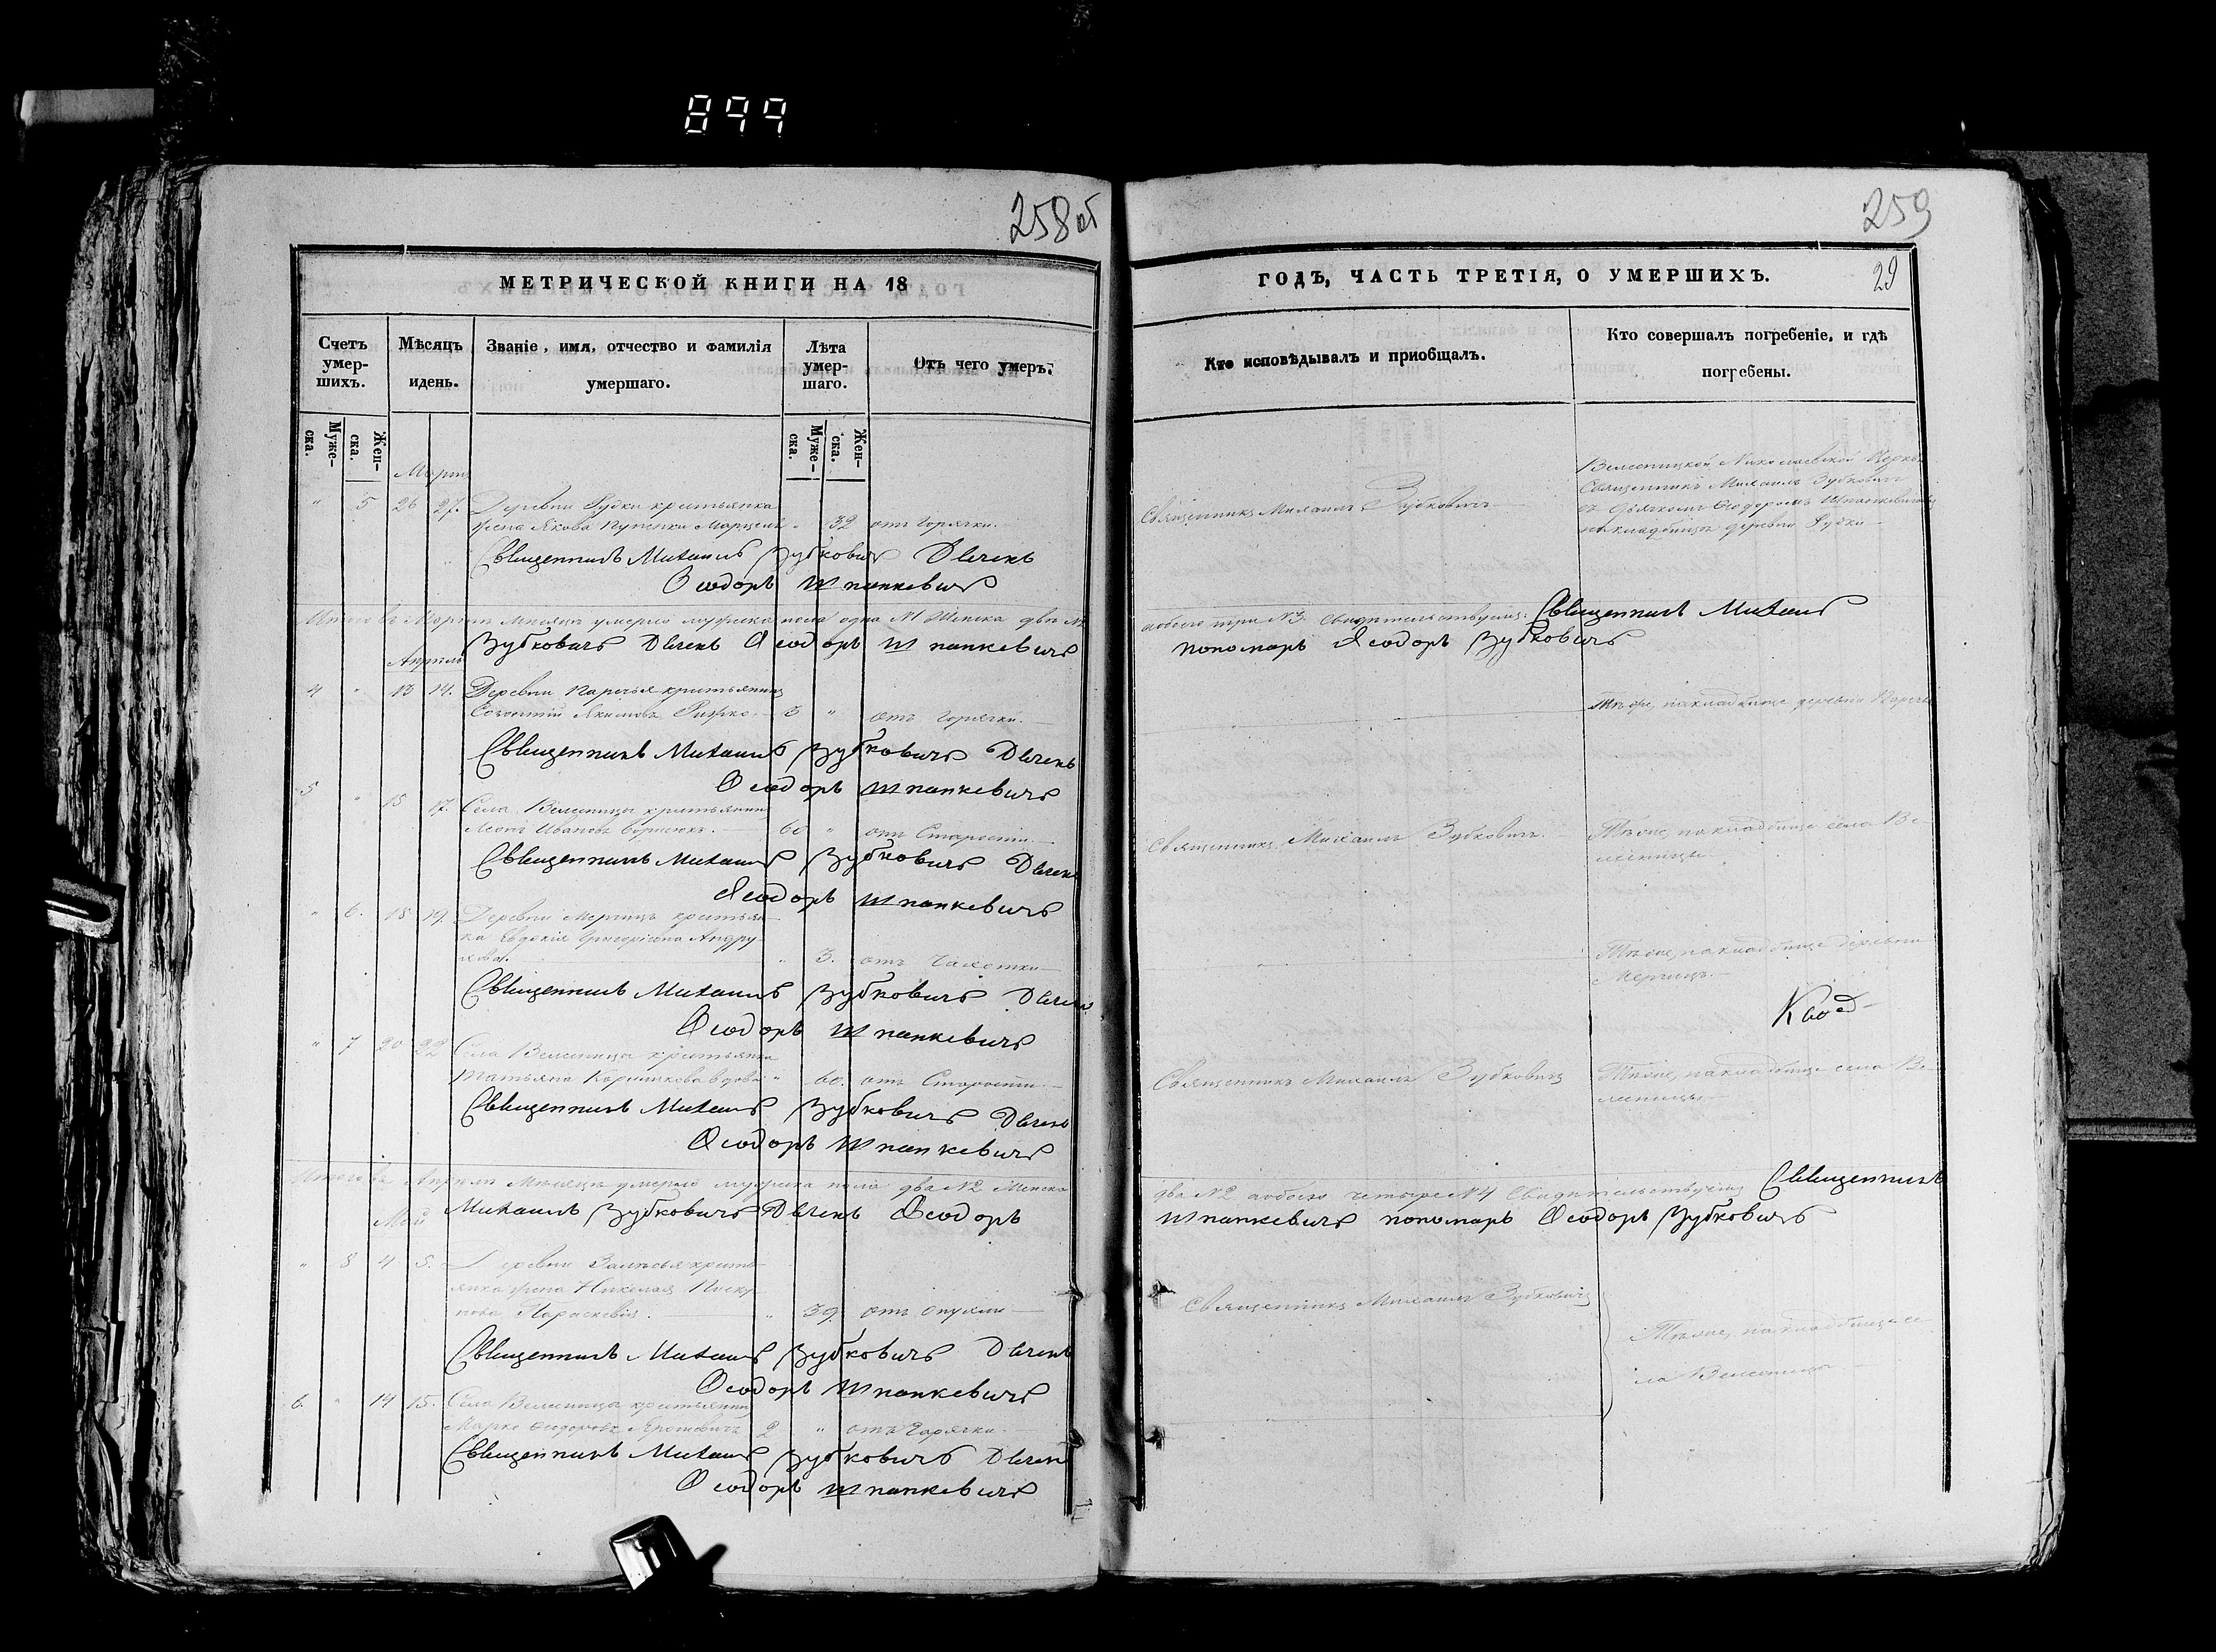 899
258об
МЕТРИЧЕСКОЙ КНИГИ НА 18
Счетъ умер-шихъ.
Мѣсяцъ идень.
Званіе, имя, отчество и фамилія умершаго.
Лѣта умер-шаго.
Отъ чего умеръ.
Муже-ска.
Жен-ска.
Муже-ска.
Жен-ска.
Мартъ
" 5 26 27. Деревни Рудки крестьянка
жена Якова " 32 отъ Горячки.
Священникъ Михаилъ Зубковичъ Дьячекъ
Ѳеодоръ Шпанкевичъ
Итого въ Мартѣ Мѣсяцѣ умерло мужеска пола одна №1 Женска двѣ №
Зубковичъ Дьячекъ Ѳеодоръ Шпанкевичъ
Апрѣль
4 " 13 14. Деревни Паречья крестьянинъ
Якимовъ 3 " отъ горячки.
Священникъ Михаилъ Зубковичъ Дьячекъ
Ѳеодоръ Шпанкевичъ
5 " 15 17. Села Велесницы крестьянинъ
Леонъ Ивановъ 60 " отъ Старости.
Священникъ Михаилъ Зубковичъ Дьячекъ
Ѳеодоръ Шпанкевичъ
" 6. 18 19. Деревни Мерчицъ крестьян-
ка Евдокія Григоріева Андру-
" 3. отъ Чахотки
Священникъ Михаилъ Зубковичъ Дьячекъ
Ѳеодоръ Шпанкевичъ
" 7 20 22 Села Велесницы крестьянка
Татьяна вдова " 60. отъ Старости.
Священникъ Михаилъ Зубковичъ Дьячекъ
Ѳеодоръ Шпанкевичъ
Итого въ Апрѣлѣ Мѣсяцѣ умерло мужеска пола два №2 Женска
Май
Михаилъ Зубковичъ Дьячекъ Ѳеодоръ
" 8 4 5. Деревни Залѣсья кресть-
янка жена Николая
Параскевія. " 39. отъ опухли
Священникъ Михаилъ Зубковичъ Дьячекъ
Ѳеодоръ Шпанкевичъ
6. " 14 15. Села Велесницы крестьянинъ
Марко Ѳеодоровъ 2 " отъ Горячки.
Священникъ Михаилъ Зубковичъ Дьячекъ
Ѳеодоръ Шпанкевичъ
259
ГОДЪ, ЧАСТЬ ТРЕТІЯ, О УМЕРШИХЪ.
29
Кто исповѣдывалъ и пріобщалъ.
Кто совершалъ погребеніе, и гдѣ погребены.
Священникъ Михаилъ Зубковичъ
Велесницкой Николаевской Церкви
Священникъ Михаилъ Зубковичъ
съ Дьячкомъ Ѳеодоромъ Шпанкевичемъ
на кладбищѣ деревни Рудки
а обоего три №3. Свидѣтельствуемъ: Священникъ Михаилъ
пономарь Ѳеодоръ Зубковичъ
Тѣже, на кладбище деревни Паречья
Священникъ Михаилъ Зубковичъ.
Тѣже, на кладбище села Ве-
лесницы.
Тѣже, на кладбище деревни
Мерчицъ.
Священникъ Михаилъ Зубковичъ
Тѣже, на кладбище села Ве-
лесницы
два №2 а обоего четыре №4 Свидѣтельствуемъ Священникъ
Шпанкевичъ пономарь Ѳеодоръ Зубковичъ
Священникъ Михаилъ Зубковичъ
Тѣже, на кладбище се-
ла Велесницы